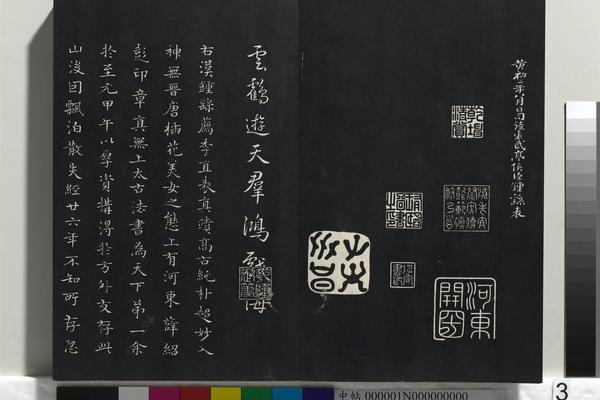 黃初二年八月日司徒東武亭侯臣鍾繇表
河東
開國
雲鶴遊天群鴻戲海
右漢鍾繇薦季直表真蹟高古純朴超妙入
神無晉唐插花美女之態上有河東薛紹
彭印章真無上太古法書為天下第一余
於至元甲午以厚資購得於方外友存此
山後因飄泊散失經廿六年不知所存忽
中帖 000001N000000000
3